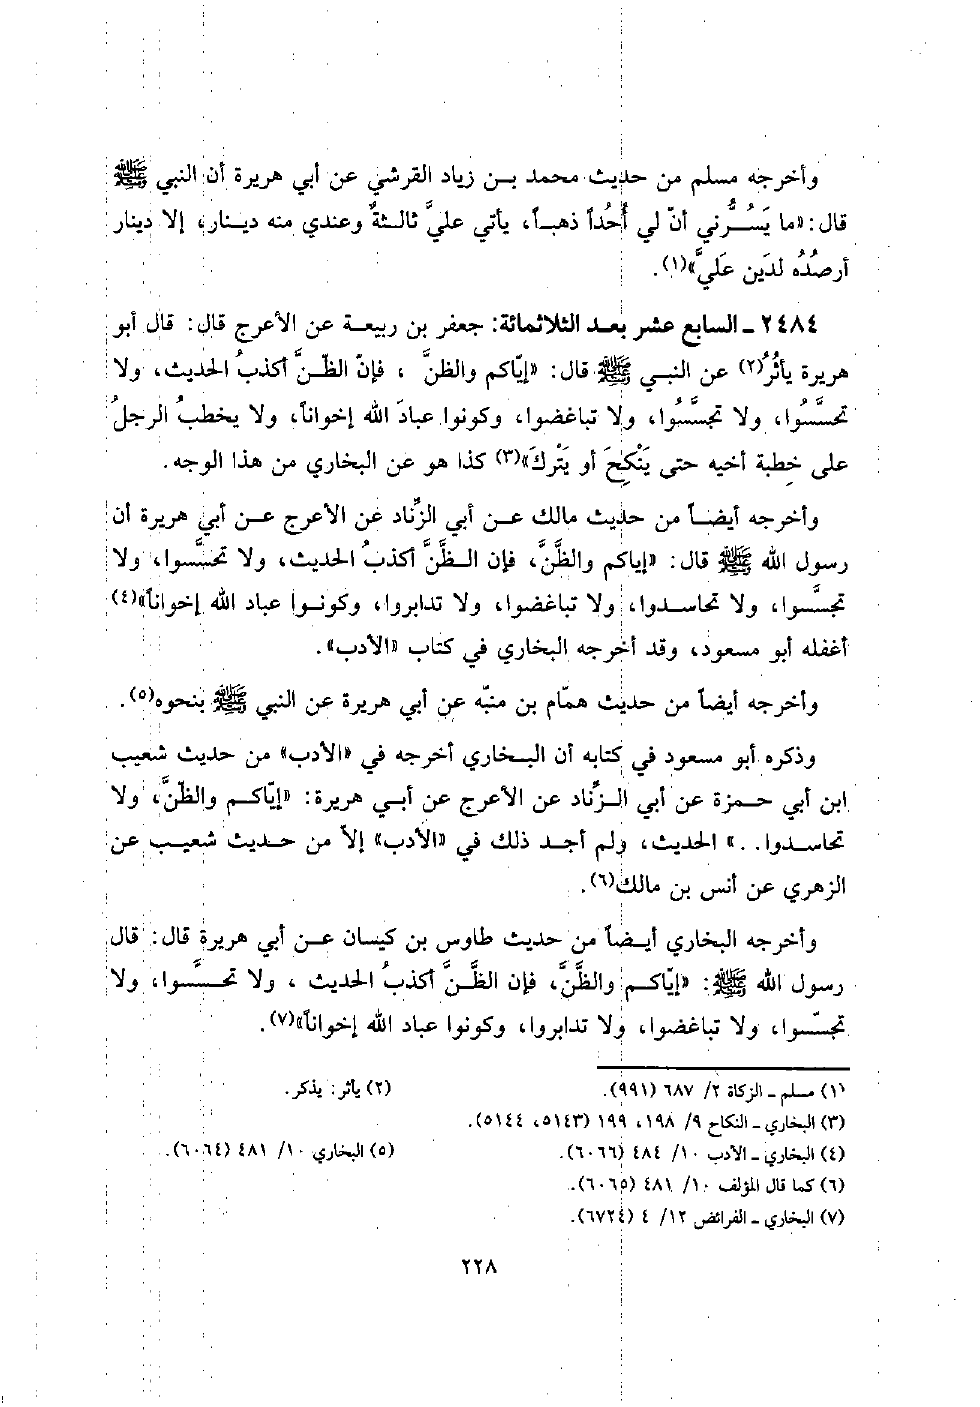 وأخرجه مسلم من حديث محمد بن زياد القرشي عن أبي هريرة أن النبي ﷺ
قال: «ما يَسُرُّني أنّ لي أُحُداً ذهباً، يأتي عليَّ ثالثةٌ وعندي منه دينار، إلا دينار
أرصُدُه لدَين عَليَّ»(١).
٢٤٨٤ ـ السابع عشر بعد الثلاثمائة: جعفر بن ربيعة عن الأعرج قال: قال أبو
هريرة يأثُرُ(٢) عن النبي ﷺ قال: «إيّاكم والظنَّ ، فإنّ الظّنَّ أكذبُ الحديث، ولا
تحسَّسُوا، ولا تجسَّسُوا، ولا تباغضوا، وكونوا عبادَ الله إخواناً، ولا يخطبُ الرجلُ
على خطبة أخيه حتى يَنْكِحَ أو يَتْركَ»(٣) كذا هو عن البخاري من هذا الوجه.
وأخرجه أيضاً من حديث مالك عن أبي الزِّناد عن الأعرج عن أبي هريرة أن
رسول الله ﷺ قال: «إياكم والظَّنَّ، فإن الظَّنَّ أكذبُ الحديث، ولا تحسَّسوا، ولا
تجسَّسوا، ولا تحاسدوا، ولا تباغضوا، ولا تدابروا، وكونوا عباد الله إخواناً»(٤)
أغفله أبو مسعود، وقد أخرجه البخاري في كتاب «الأدب».
وأخرجه أيضاً من حديث همّام بن منبّه عن أبي هريرة عن النبي ﷺ بنحوه(٥).
وذكره أبو مسعود في كتابه أن البخاري أخرجه في «الأدب» من حديث شعيب
ابن أبي حمزة عن أبي الزِّناد عن الأعرج عن أبي هريرة: «إيّاكم والظّنَّ، ولا
تحاسدوا. .» الحديث، ولم أجد ذلك في «الأدب» إلاّ من حديث شعيب عن
الزهري عن أنس بن مالك(٦).
وأخرجه البخاري أيضاً من حديث طاوس بن كيسان عن أبي هريرة قال: قال
رسول الله ﷺ: «إيّاكم والظَّنَّ، فإن الظَّنَّ أكذبُ الحديث ، ولا تحسَّسوا، ولا
تجسّسوا، ولا تباغضوا، ولا تدابروا، وكونوا عباد الله إخواناً»(٧).
(١) مسلم ـ الزكاة ٢/ ٦٨٧ (٩٩١). (٢) يأثر: يذكر.
(٣) البخاري ـ النكاح ٩/ ١٩٨، ١٩٩ (٥١٤٣، ٥١٤٤).
(٤) البخاري ـ الأدب ١٠/ ٤٨٤ (٦٠٦٦). (٥) البخاري ١٠/ ٤٨١ (٦٠٦٤).
(٦) كما قال المؤلف ١٠/ ٤٨١ (٦٠٦٥).
(٧) البخاري ـ الفرائض ١٢/ ٤ (٦٧٢٤).
٢٢٨